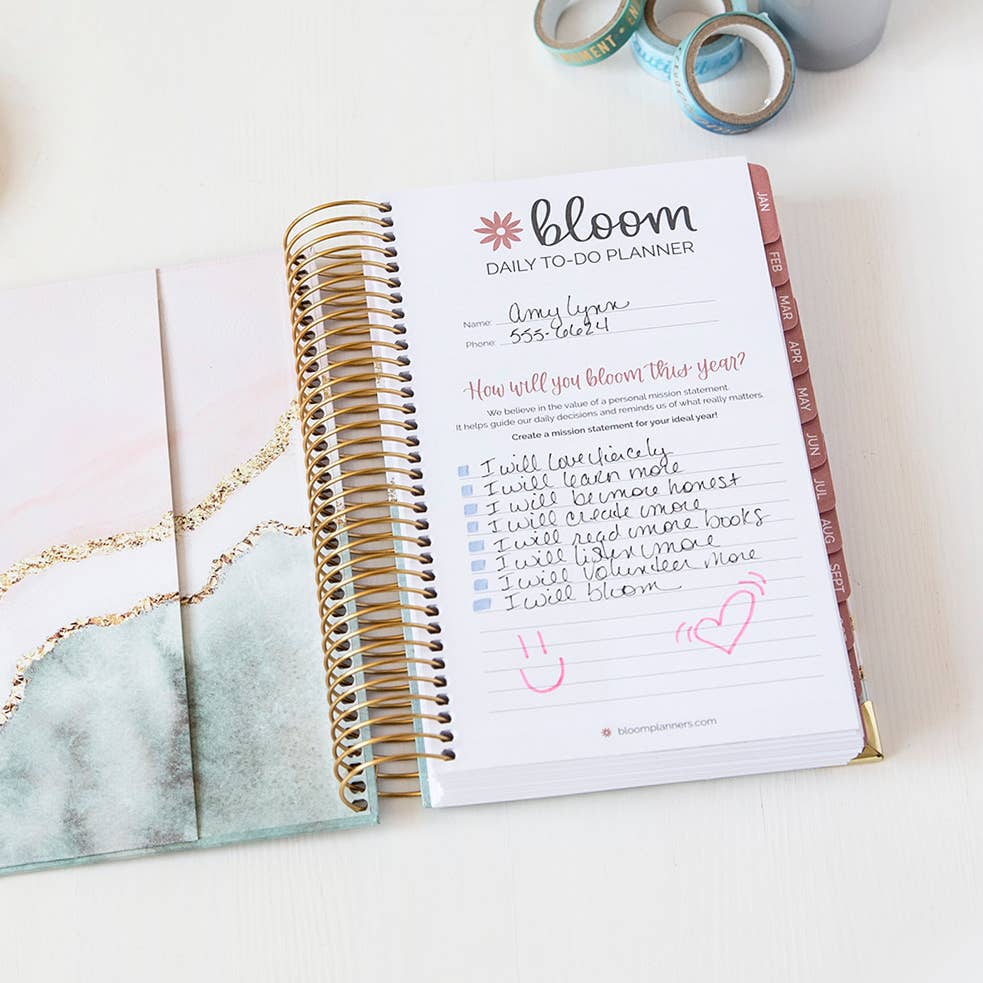 MENT • EN
bloom
DAILY TO-DO PLANNER
Name: Amy Lynn
Phone: 555-6624
How will you bloom this year?
We believe in the value of a personal mission statement.
It helps guide our daily decisions and reminds us of what really matters.
Create a mission statement for your ideal year!
I will love fiercely
I will learn more
I will be more honest
I will create more
I will read more books
I will listen more
I will volunteer more
I will bloom
bloomplanners.com
JAN
FEB
MAR
APR
MAY
JUN
JUL
AUG
SEPT